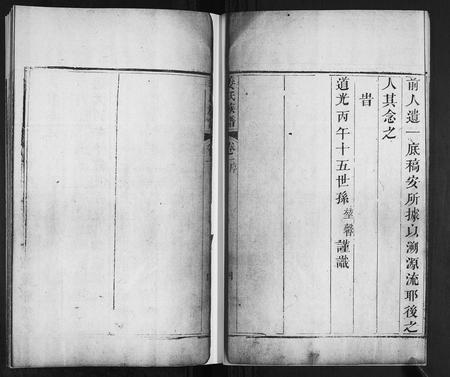 前人遺一底稿安所據以溯源流耶後之
人其念之
旹
道光丙午十五世孫 堃馨 謹識
氏族譜 卷一 序